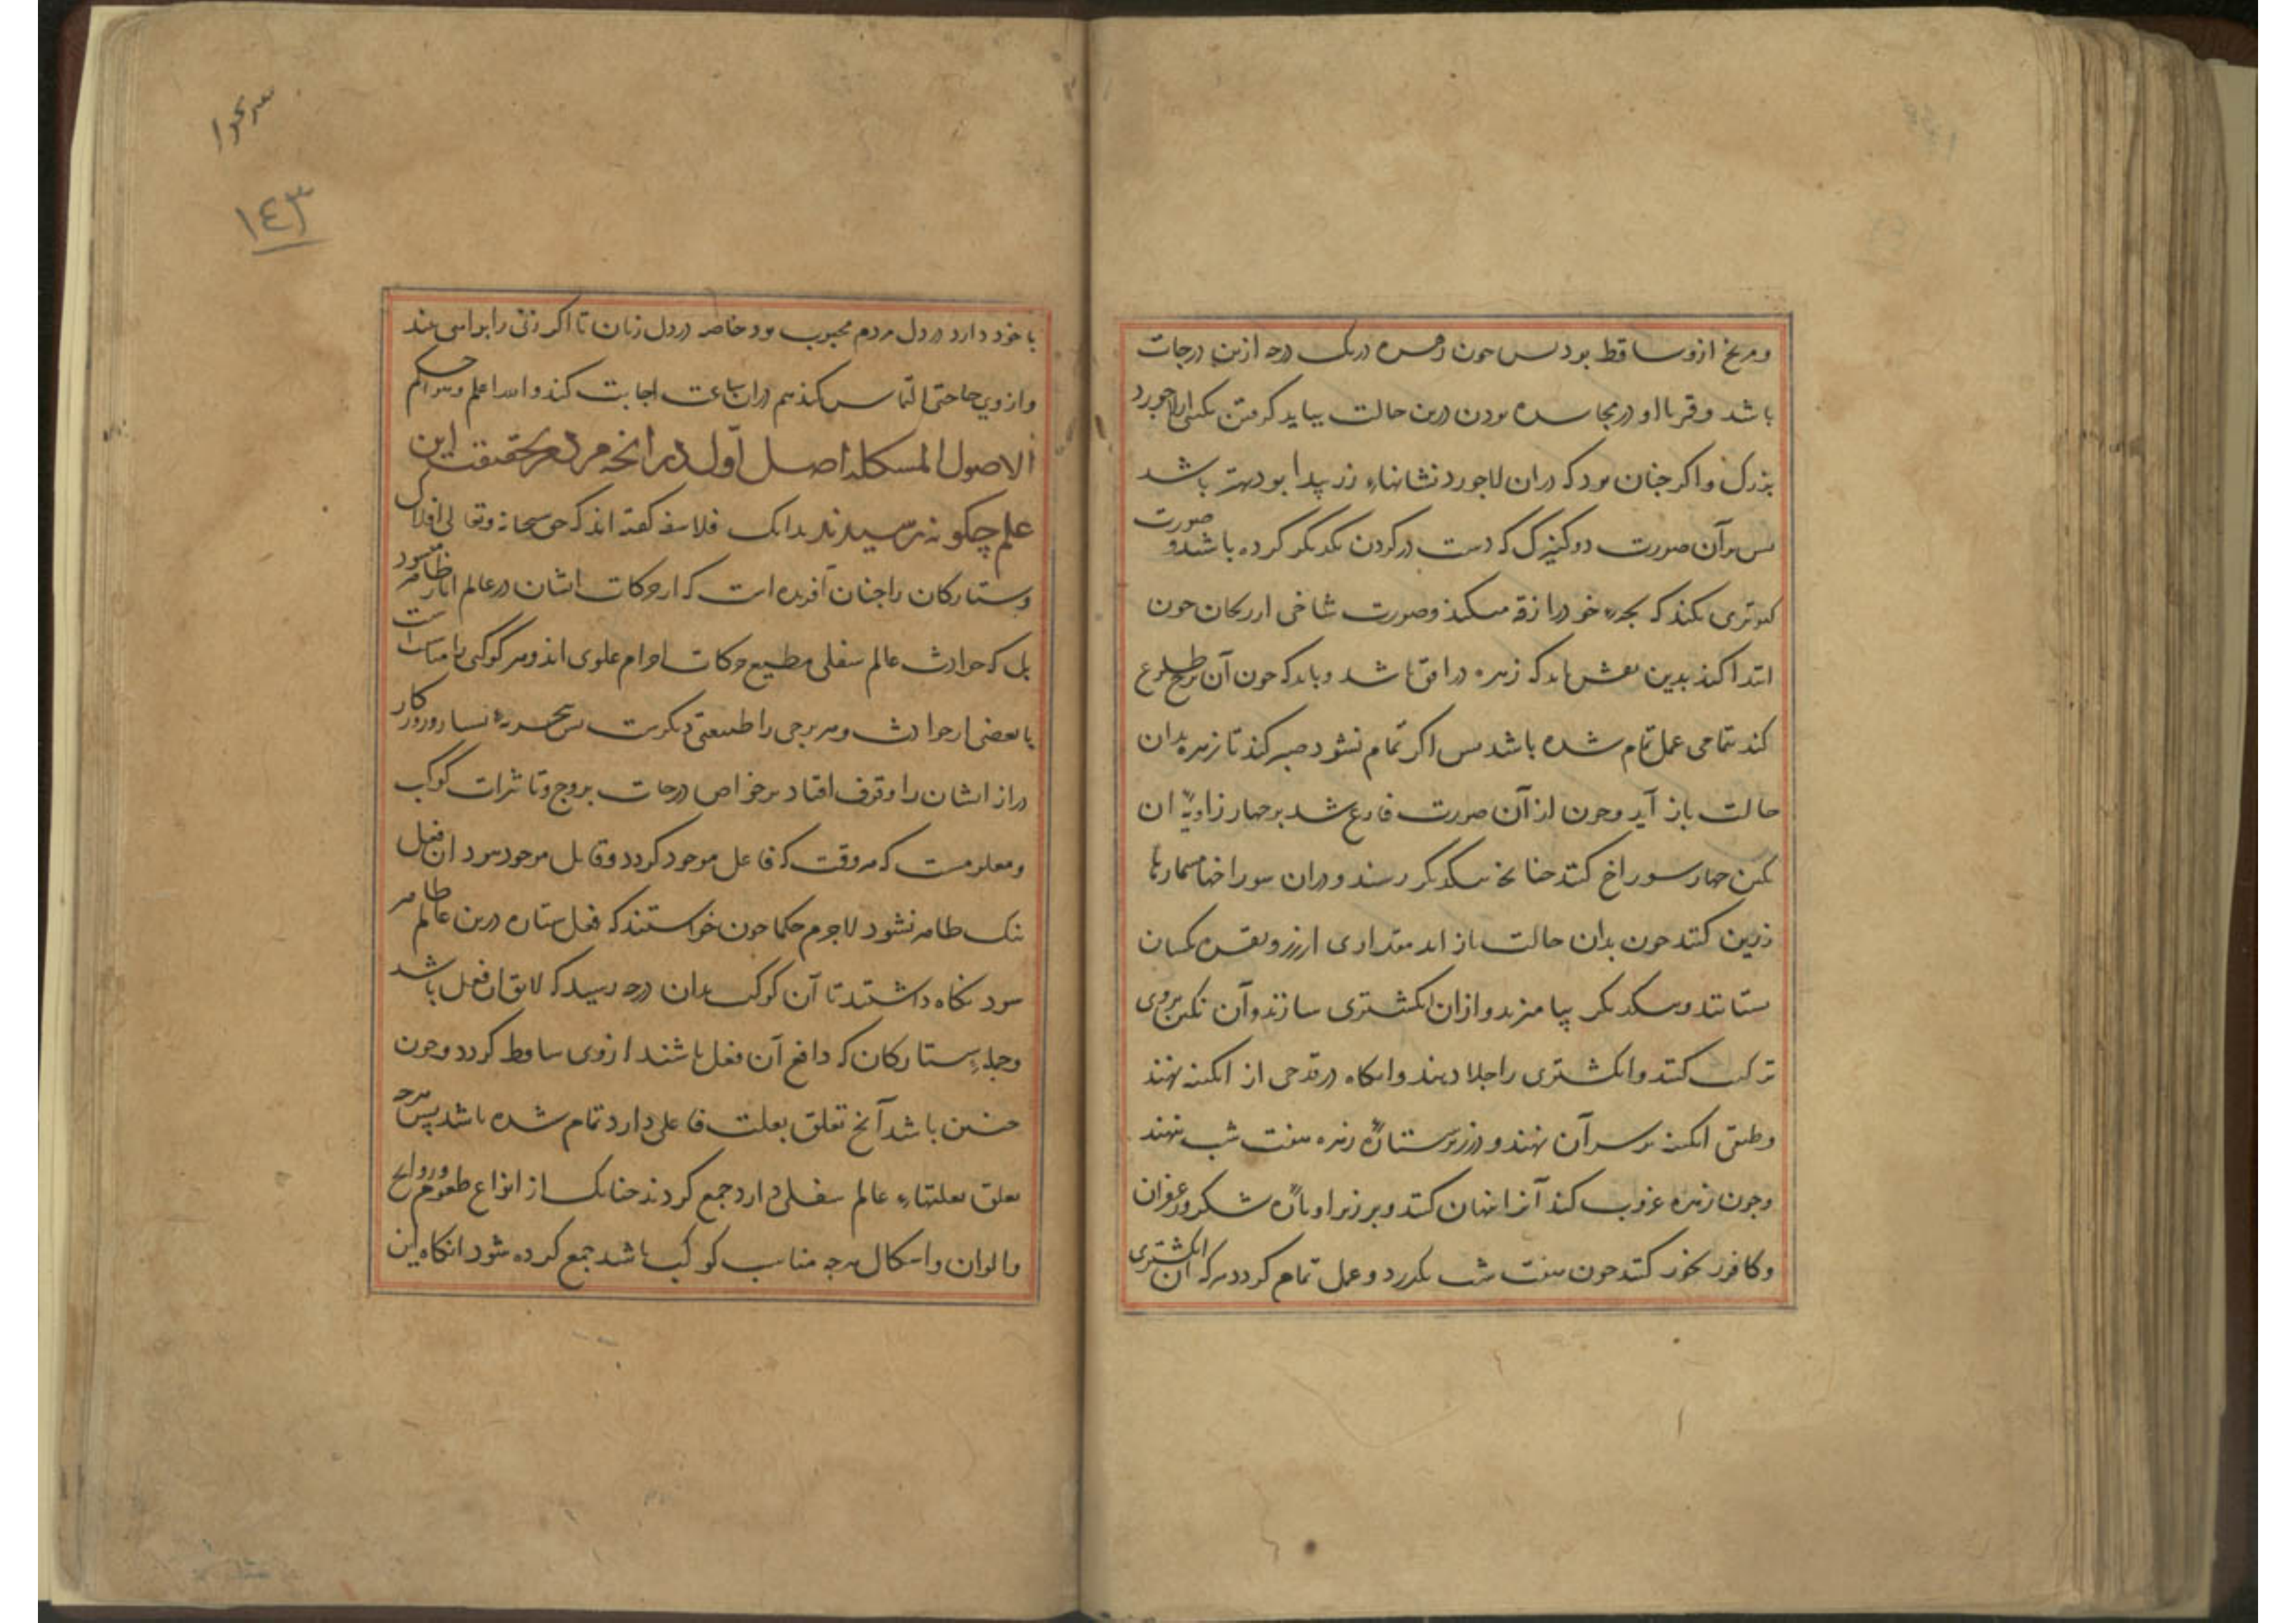 و مریخ ازو ساقط بود بس جون زهره دریک درجه ازین درجات
باشد و قمر با او در مجاسده بودن درین حالت بباید کرفتن نکینی از لاجورد
بزرک و اکر جنان بود که دران لاجورد نشانهاء زر پیدا بود بهتر باشد
بس بر آن صورت دو کنیزک که دست در کردن یکدیکر کرده باشد و صورت
کبوتری بکند که بجهء خود را زقه میکند و صورت شاخی از ریحان جون
ابتدا کند بدین نقش باید که زهره در افق باشد و باید که جون آن برج طلوع
کند تمامی عمل تمام شده باشد بس اکر تمام نشود صبر کند تا زهره بدان
حالت باز آید و جون از آن صورت فارغ شد بر جهار زاویهٔ ان
نکین جهار سوراخ کنند جنانج بیکدیکر رسند و دران سوراخها مسمارها
زرین کنند جون بدان حالت باز اید مقداری از زر و نقره یکسان
بستانند و بیکدیکر بیامیزند و ازان انکشتری سازند و آن نکین بروی
ترکیب کنند و انکشتری را جلا دهند و انکاه در قدحی از ابکینه نهند
و طبقی ابکینه بر سر آن نهند و در زیر ستارهٔ زهره هفت شب بنهند
و جون زهره غروب کند آنرا بنهان کنند و بر زیر او پارهٔ شکر و زعفران
و کافور بخور کنند جون هفت شب بکذرد و عمل تمام کردد هر که آن انکشتری
١٤٣
با خود دارد در دل مردم محبوب بود خاصه در دل زنان تا اکر زنی را براسی بیند
و از وی حاجتی التماس کند هم دران ساعت اجابت کند و الله اعلم و هو احکم
الاصول المشکله اصل اول در انجه مردم بر حقیقت این
علم چکونه برسیدند بدانک فلاسفه کفته اند که حق سبحانه و تعالی افلاک
و ستارکان را جنان آفریده است که از حرکات ایشان در عالم اثار ظاهر شود
بل که حوادث عالم سفلی مطیع حرکات اجرام علوی اند و هر کوکبی را مناسبت است
با بعضی از حوادث و هر برجی را طبیعتی دیکرست بس بتجربهٔ بسیار و روزکار
دراز ایشان را وقوف افتاد بر خواص درجات بروج و تاثیرات کواکب
و معلومست که هر وقت که فاعل موجود کردد و قابل موجود نبود ان فعل
نیک ظاهر نشود لاجرم حکما جون خواستند که فعل ستاره درین عالم ظاهر
شود نکاه داشتند تا آن کوکب بدان درجه رسید که لایق ان فعل باشد
و جملهء ستارکان که دافع آن فعل باشند از وی ساقط کردد و جون
جنین باشد آنج تعلق بعلت فاعلی دارد تمام شده باشد پس هرجه
تعلق بعلتهاء عالم سفلی دارد جمع کردند جنانک از انواع طعوم و روایح
و الوان و اشکال هرجه مناسب کوکب باشد جمع کرده شود انکاه این